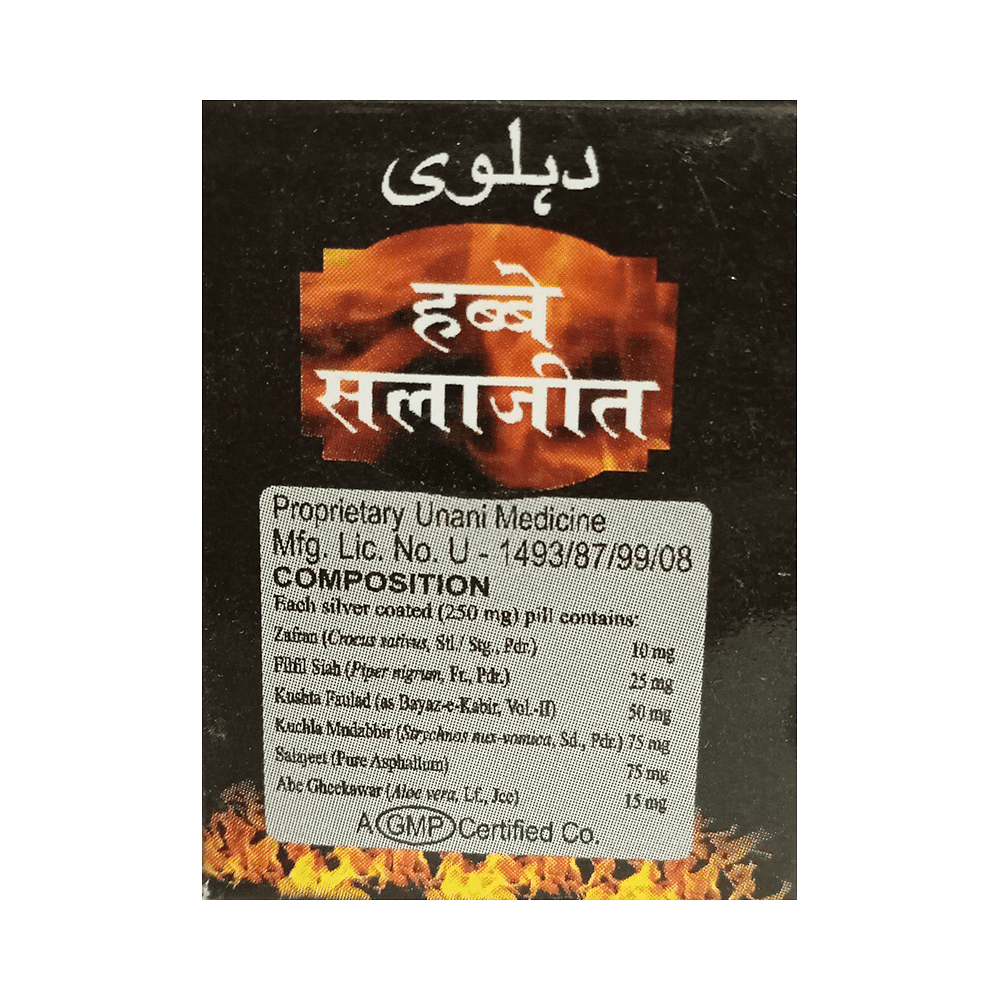 دہلوی
हब्बे
सलाजीत
Proprietary Unani Medicine
Mfg. Lic. No. U - 1493/87/99/08
COMPOSITION
Each silver coated (250 mg) pill contains:
Zafran (Crocus sativus, Stl./ Stg., Pdr.) 10 mg
Filfil Siah (Piper nigrum, Fr., Pdr.) 25 mg
Kushta Faulad (as Bayaz-e-Kabir, Vol.-II) 50 mg
Kuchla Mudabbir (Strychnos nux-vomica, Sd., Pdr.) 75 mg
Salajeet (Pure Asphaltum) 75 mg
Abe Gheekawar (Aloe vera, Lf., Jce) 15 mg
A GMP Certified Co.